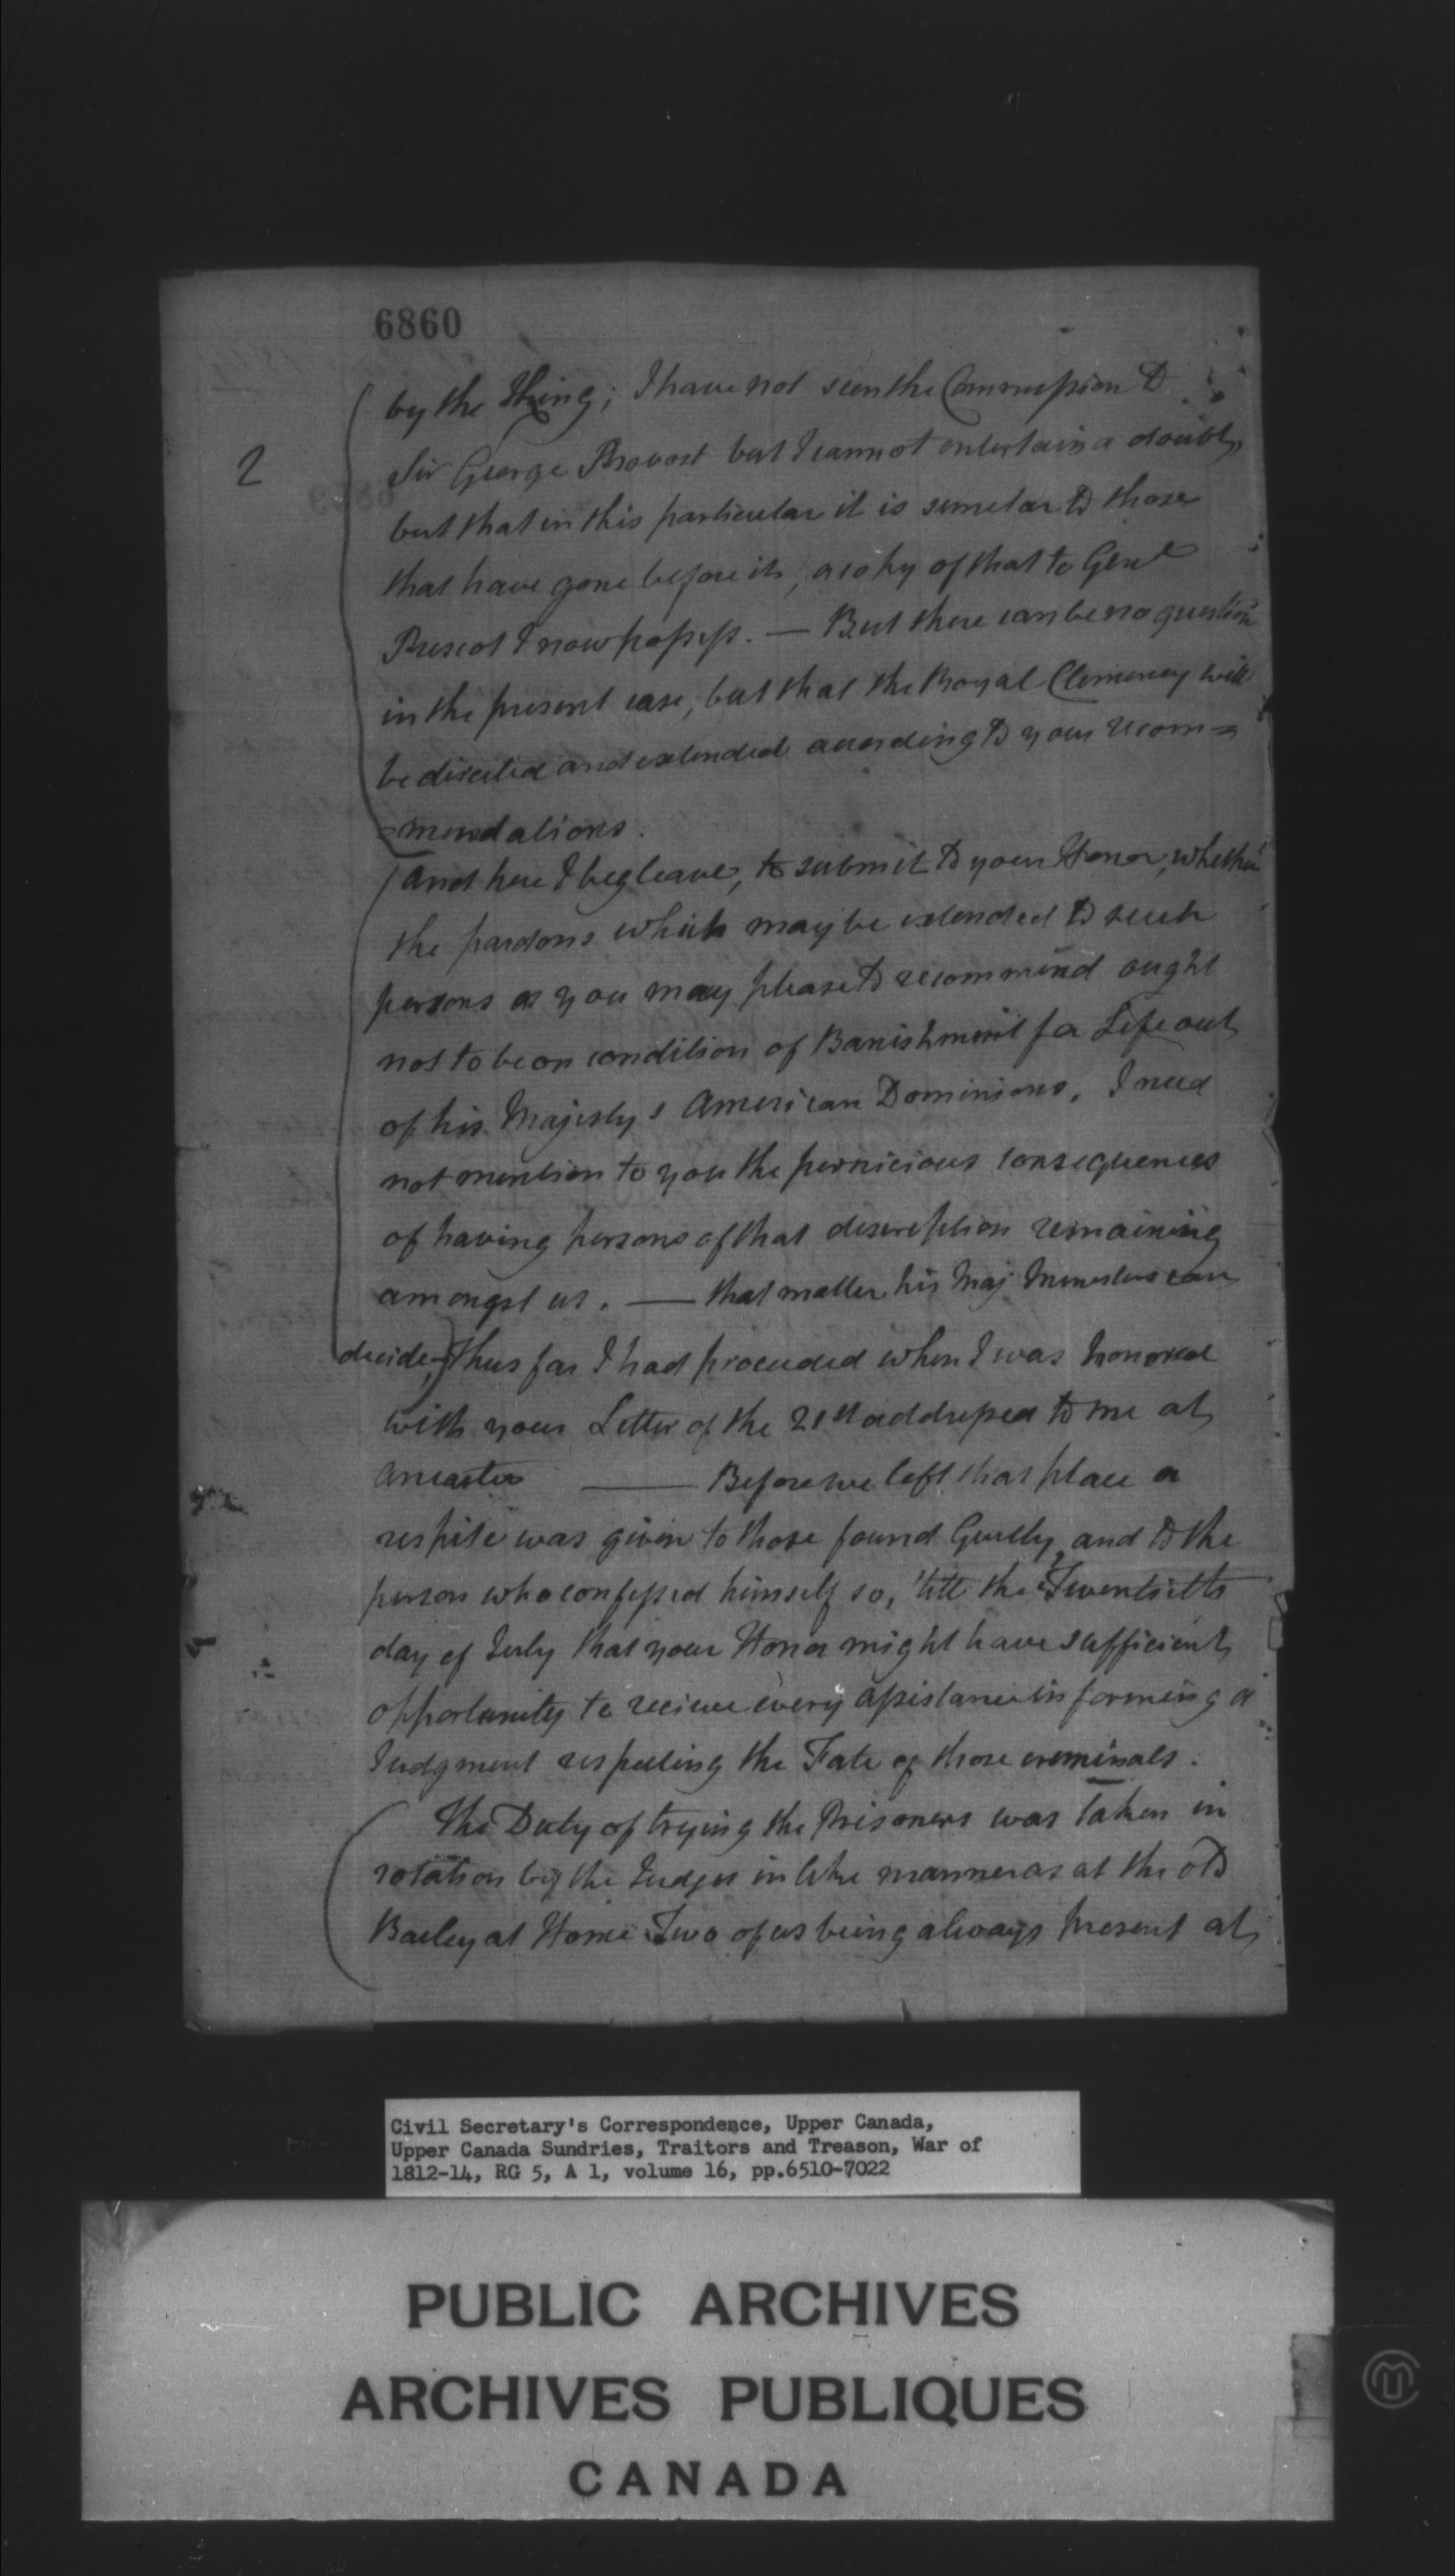 6860
by the King; I have not seen the Commission to
2
Sir George Provost but I cannot entertain a doubt,
but that in this particular it is similar to those
that have gone before it, a copy of that to Genl
Prescot I now possess. — But there can be no question
in the present case, but that the Royal Clemency will
be directed and extended according to your recom=
=mendations.
(And here I beg leave, to submit to your Honor, whether
the pardons which may be extended to such
persons as you may please to recommend ought
not to be on condition of Banishment for Life out
of his Majesty's American Dominions. I need
not mention to you the pernicious consequences
of having persons of that description remaining
amongst us. — that matter his Maj Ministers can
decide,) Thus far I had proceeded when I was honored
with your Letter of the 21st addressed to me at
Ancaster — Before we left that place a
respite was given to those found Guilty, and to the
person who confessed himself so, 'till the Twentieth
day of July that your Honor might have sufficient
opportunity to recieve every assistance in forming a
Judgment respecting the Fate of those criminals.
(The Duty of trying the Prisoners was taken in
rotation by the Judges in like manner as at the old
Bailey at Home Two of us being always present at
Civil Secretary's Correspondence, Upper Canada,
Upper Canada Sundries, Traitors and Treason, War of
1812-14, RG 5, A 1, volume 16, pp.6510-7022
PUBLIC ARCHIVES
ARCHIVES PUBLIQUES
CANADA